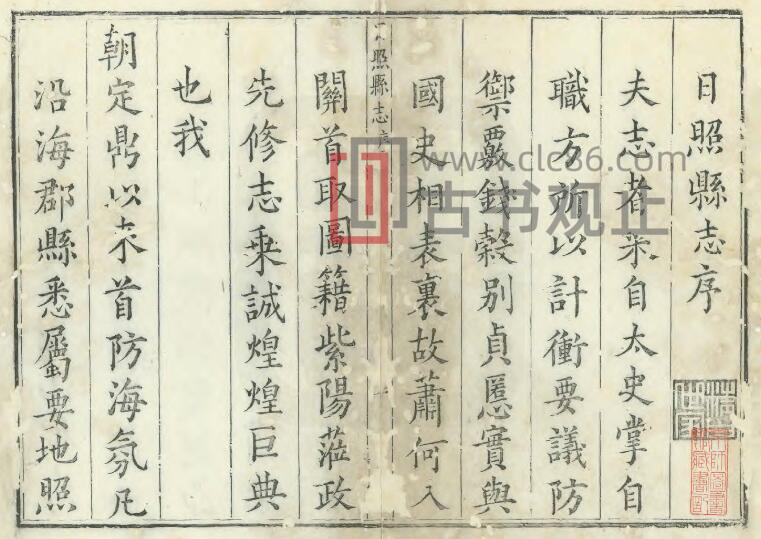 日照縣志序
夫志者采自太史掌自
職方所以計衝要議防
禦覈錢榖別貞慝實與
國史相表裏故蕭何入
關首取圖籍紫陽蒞政
先修志乘誠煌煌巨典
也我
朝定鼎以来首防海氛凡
沿海郡縣悉屬要地照
照縣志
www.clc86.com
古书观止